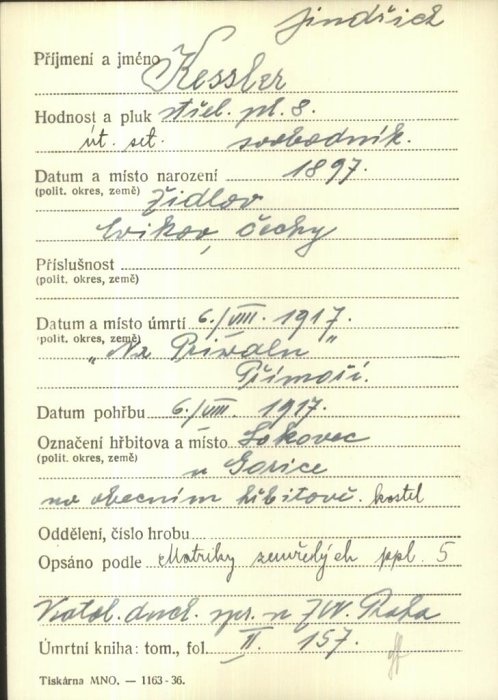 Jindřich
Příjmení a jméno Kessler
Hodnost a pluk střel. pl. 8.
út. set. svobodník.
Datum a místo narození 1897.
(polit. okres, země) Židlov
Cvikov, Čechy
Příslušnost
(polit. okres, země)
Datum a místo úmrtí 6./VIII. 1917.
(polit. okres, země)
„Na Privalu"
Přímoří.
Datum pohřbu 6./VIII. 1917.
Označení hřbitova a místo Lokovec
(polit. okres, země) u Gorice
na obecním hřbitově. kostel
Oddělení, číslo hrobu
Opsáno podle Matriky zemřelých ppl. 5
Katol. duch. spr. u ZVV. Praha
Úmrtní kniha: tom., fol. II. 157.
Tiskárna MNO. — 1163-36.